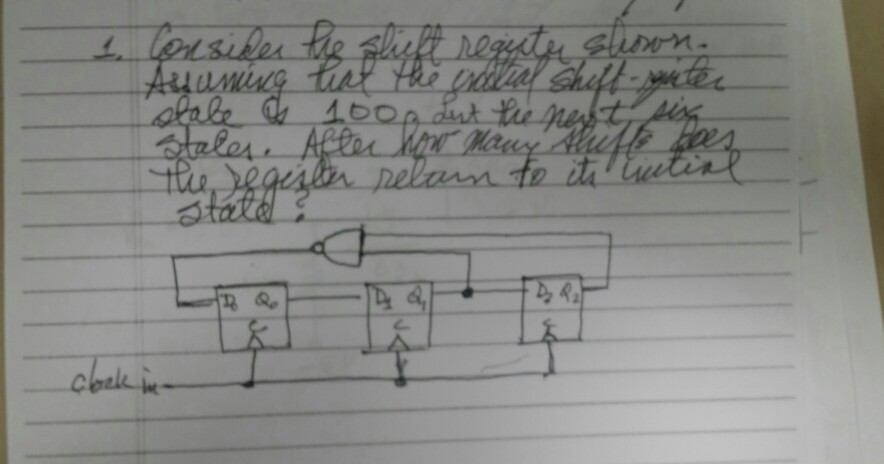 1. Consider the shift register shown.
Assuming that the initial shift-register
state is 100, list the next six
states. After how many shifts does
the register return to its initial
state?
D0 Q0 D1 Q1 D2 Q2
C C C
clock in